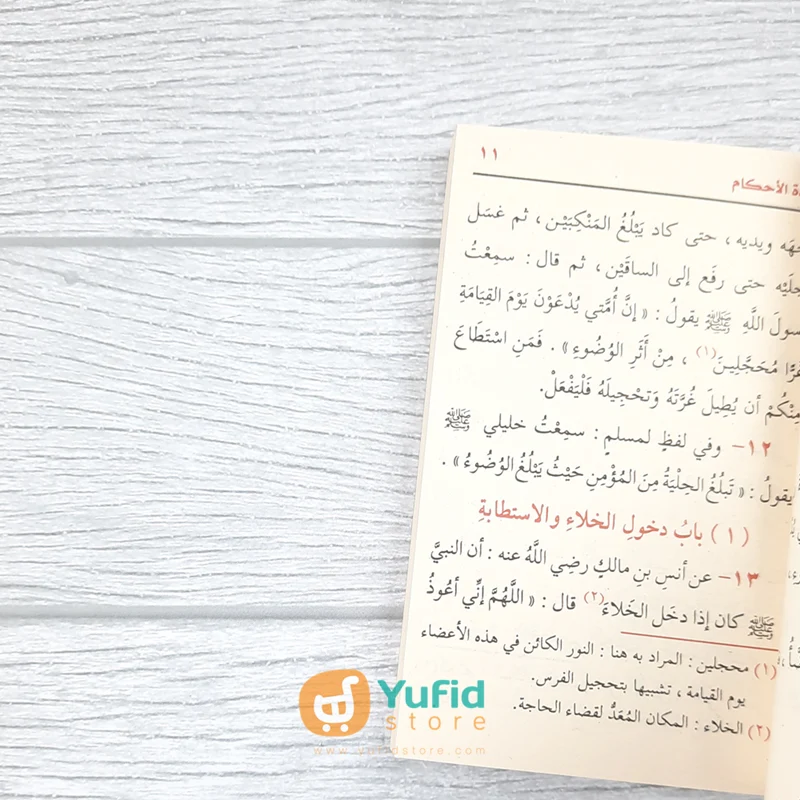 ١١
الأحكام
ويديه ، حتى كاد يَبْلُغُ المَنْكِبَيْن ، ثم غسَل
حتى رفَع إلى الساقَيْن ، ثم قال : سمِعْتُ
اللَّهِ ﷺ يقولُ : « إنَّ أُمَّتي يُدْعَوْنَ يَوْمَ القِيَامَةِ
غُرًّا مُحَجَّلِينَ(١) ، مِنْ أَثَرِ الوُضُوءِ » . فَمَنِ اسْتَطَاعَ
مِنْكُمْ أن يُطِيلَ غُرَّتَهُ وَتحْجِيلَهُ فَلْيَفْعَلْ.
١٢- وفي لفظٍ لمسلمٍ : سمِعْتُ خليلي ﷺ
يقولُ : « تَبلُغُ الحِلْيَةُ مِنَ المُؤْمِنِ حَيْثُ يَبْلُغُ الوُضُوءُ » .
( ١ ) بابُ دخولِ الخلاءِ والاستطابةِ
١٣- عن أنسِ بنِ مالكٍ رضِي اللَّهُ عنه : أن النبيَّ
ﷺ كان إذا دخَل الخَلاءَ(٢) قال : « اللَّهُمَّ إنِّي أعُوذُ
(١) محجلين : المراد به هنا : النور الكائن في هذه الأعضاء
يوم القيامة ، تشبيها بتحجيل الفرس.
(٢) الخلاء : المكان المُعَدُّ لقضاء الحاجة.
Yufid
store
www.yufidstore.com